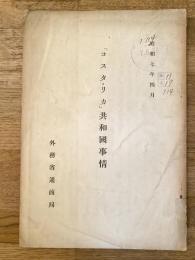 昭和七年四月
「コスタ・リカ」共和國事情
外務省通商局